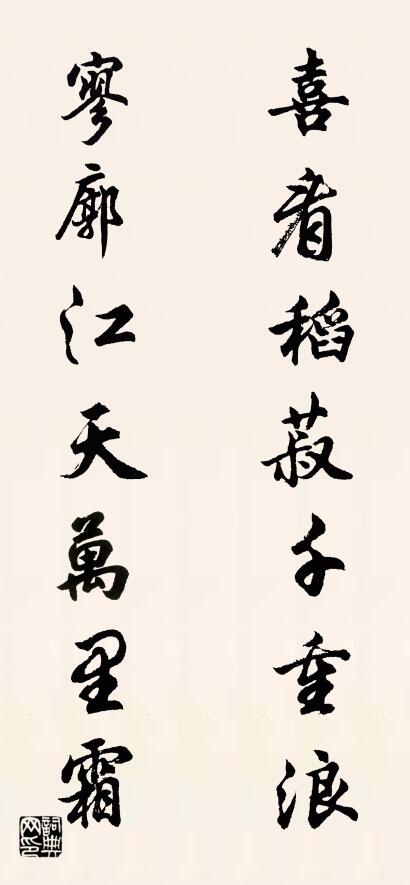 喜看稻菽千重浪
寥廓江天萬里霜
詞典網印